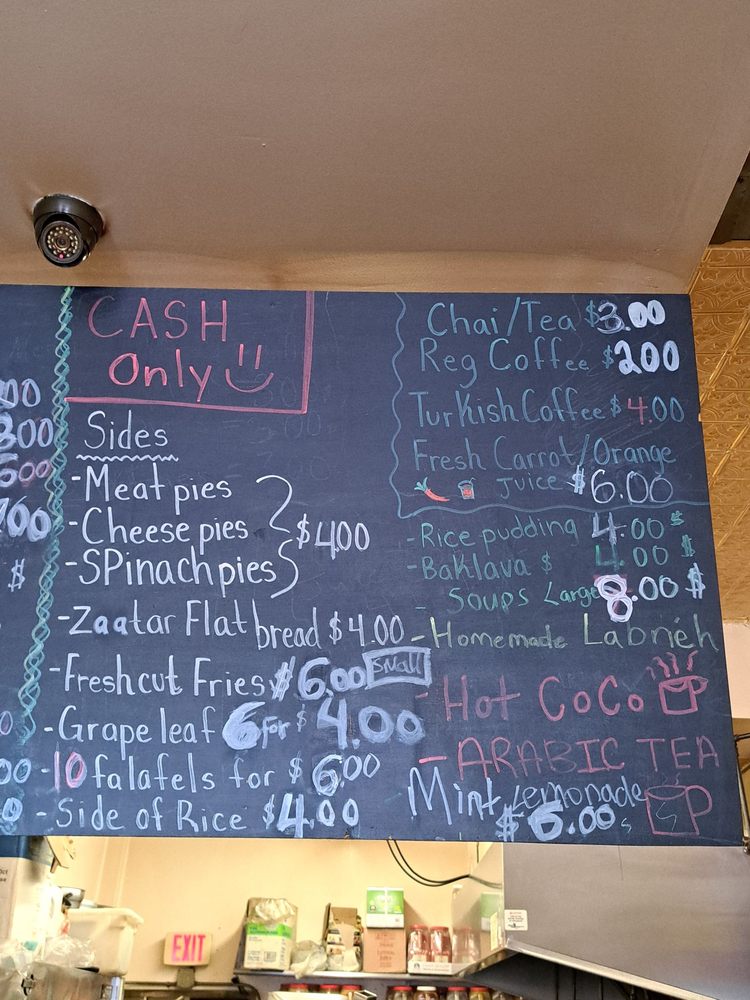 CASH
Only
Sides
-Meat pies
-Cheese pies
-SPinach pies
$4.00
-Zaatar Flat bread $4.00
-Freshcut Fries $6.00 Small
-Grape leaf 6 for $4.00
-10 falafels for $6.00
-Side of Rice $4.00
Chai/Tea $3.00
Reg Coffee $2.00
TurKish Coffee $4.00
Fresh Carrot/Orange
Juice $6.00
-Rice pudding 4.00$
-Baklava $ 4.00 $
- Soups Large 8.00 $
-Homemade Labneh
-Hot CoCo
-ARABIC TEA
Mint Lemonade
$6.00
EXIT